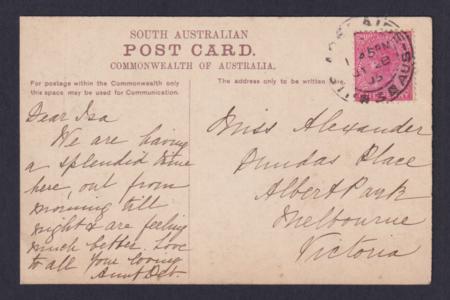 SOUTH AUSTRALIAN
POST CARD.
COMMONWEALTH OF AUSTRALIA.
For postage within the Commonwealth only
this space may be used for Communication.
The address only to be written here.
Dear Isa
We are having
a splendid time
here, out from
morning till
night & are feeling
much better. Love
to all your loving
Aunt Deb.
Miss Alexander
Dundas Place
Albert Park
Melbourne
Victoria